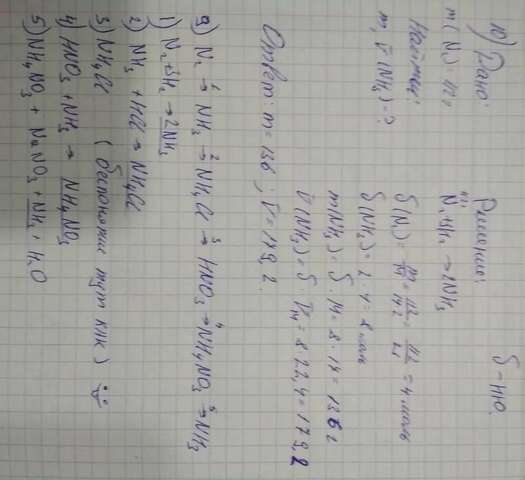 10) Дано:
m(N₂) = 112
Найти:
m, V(NH₃) = ?
Решение:
δ - ню.
N₂ + 3H₂ → 2NH₃
δ(N₂) = m/M = 112/14·2 = 112/28 = 4 моль
δ(NH₃) = 2 · 4 = 8 моль
m(NH₃) = δ · M = 8 · 17 = 136 г
V(NH₃) = δ · Vм = 8 · 22,4 = 179,2
Ответ: m = 136; V = 179,2.
9) N₂ →¹ NH₃ →² NH₄Cl →³ HNO₃ →⁴ NH₄NO₃ →⁵ NH₃
1) N₂ + 3H₂ → 2NH₃
2) NH₃ + HCl → NH₄Cl
3) NH₄Cl
4) HNO₃ + NH₃ → NH₄NO₃
5) NH₄NO₃ + NaNO₃ + NH₃ + H₂O